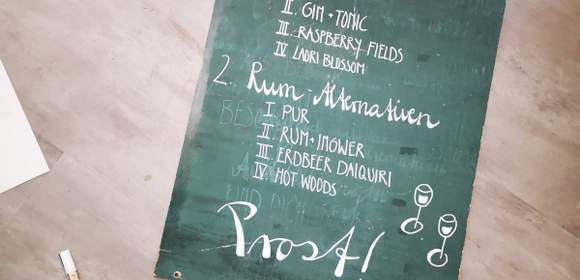 II. GIN + TONIC
III. RASPBERRY FIELDS
IV LAORI BLOSSOM
2. Rum-Alternativen
I. PUR
II RUM + INGWER
III ERDBEER DAIQUIRI
IV HOT WOODS
Prost!